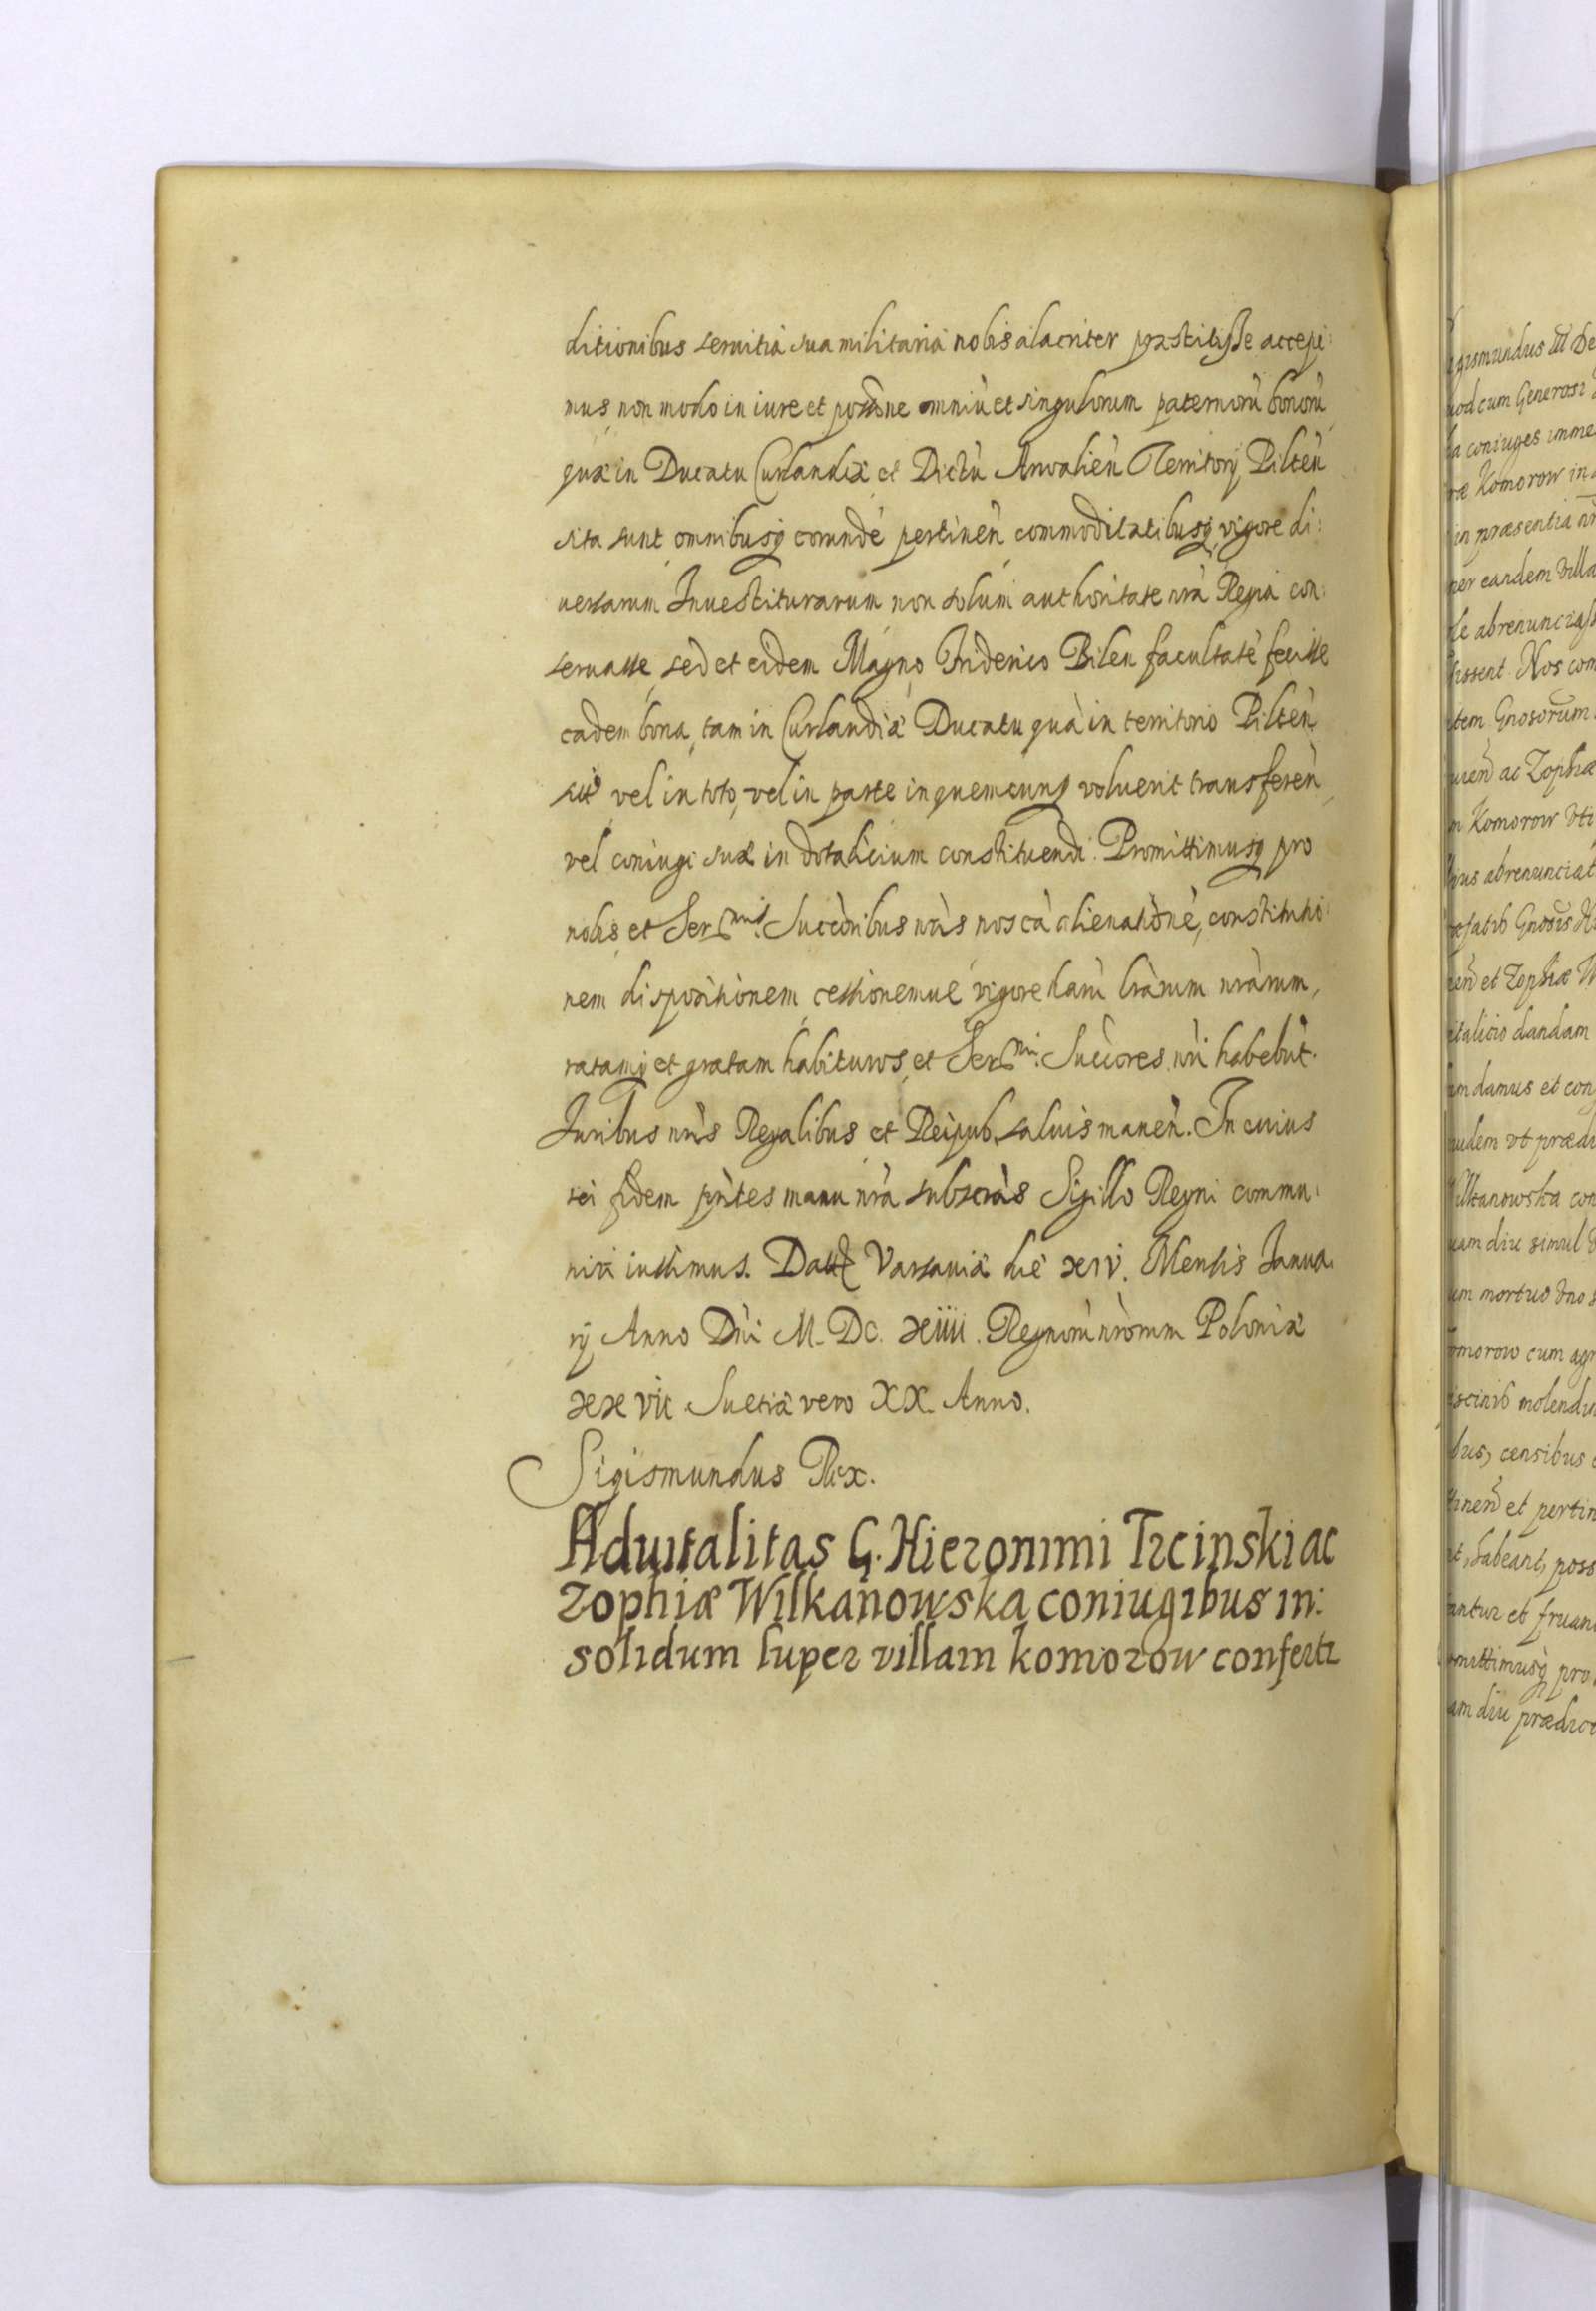 ditionibus seruitia sua militaria nobis alacriter præstitisse accepi:
mus, non modo in iure et possone omniū et singulorum paternorū bonorū
quæ in Ducatu Curlandiæ et Districtū Territorij Pilteñ
sita sunt omnibusq eorundē pertineñ commoditatibusq, vigore di:
uersarum Inuestiturarum non solum authoritate nrā Regia con:
seruasse, sed et eidem Magno Friderico Bilen facultatē fecisse
eadem bona, tam in Curlandiæ Ducatu quā in territorio Pilteñ
vel in toto, vel in parte in quemcunq voluerit transfereñ,
vel coniugi suæ in dotalicium constituendi. Promittimusq pro
nobis et Ser.mis Succōribus nrīs nos eā alienationē, constitutio:
nem dispositionem, cessionemuē vigore harū lrārum nrārum,
ratamq et gratam habituros, et Ser.mi Succōres nrī habebūt.
Iuribus nrīs Regalibus et Reipub. saluis maneñ. In cuius
rei fidem pñtes manu nrā subscrās Sigillo Regni commu:
nirī iussimus. Dat Varsauiæ diē xiv. Mensis Janua:
rij Anno Dñi M. DC. xiiii. Regnorū nrōrum Poloniæ
xxvii Suetiæ vero XX. Anno.
Sigismundus Rex.
Aduitalitas G. Hieronimi Trcinski ac
Zophiæ Wilkanowska coniugibus in:
solidum super villam komorow confertr
gismundus III De
uod cum Generosi
la coniuges imme
ræ Komorow in
in præsentia nr
per eandem villa
le abrenunciass
issent Nos com
tem Gnosorum
uen ac Zophiæ
m Komorow vti
bus abrenunciat
efatis Gnosis
ren et Zophiæ W
italicio dandam
um damus et con
udem vt prædi
ilkanowska con
uam diu simul
um mortuo vno
omorow cum agr
iscinis molendin
bus, censibus
tinen et pertin
nt, habeant, poss
antur et fruan
omittimusq pro
am diu prædict